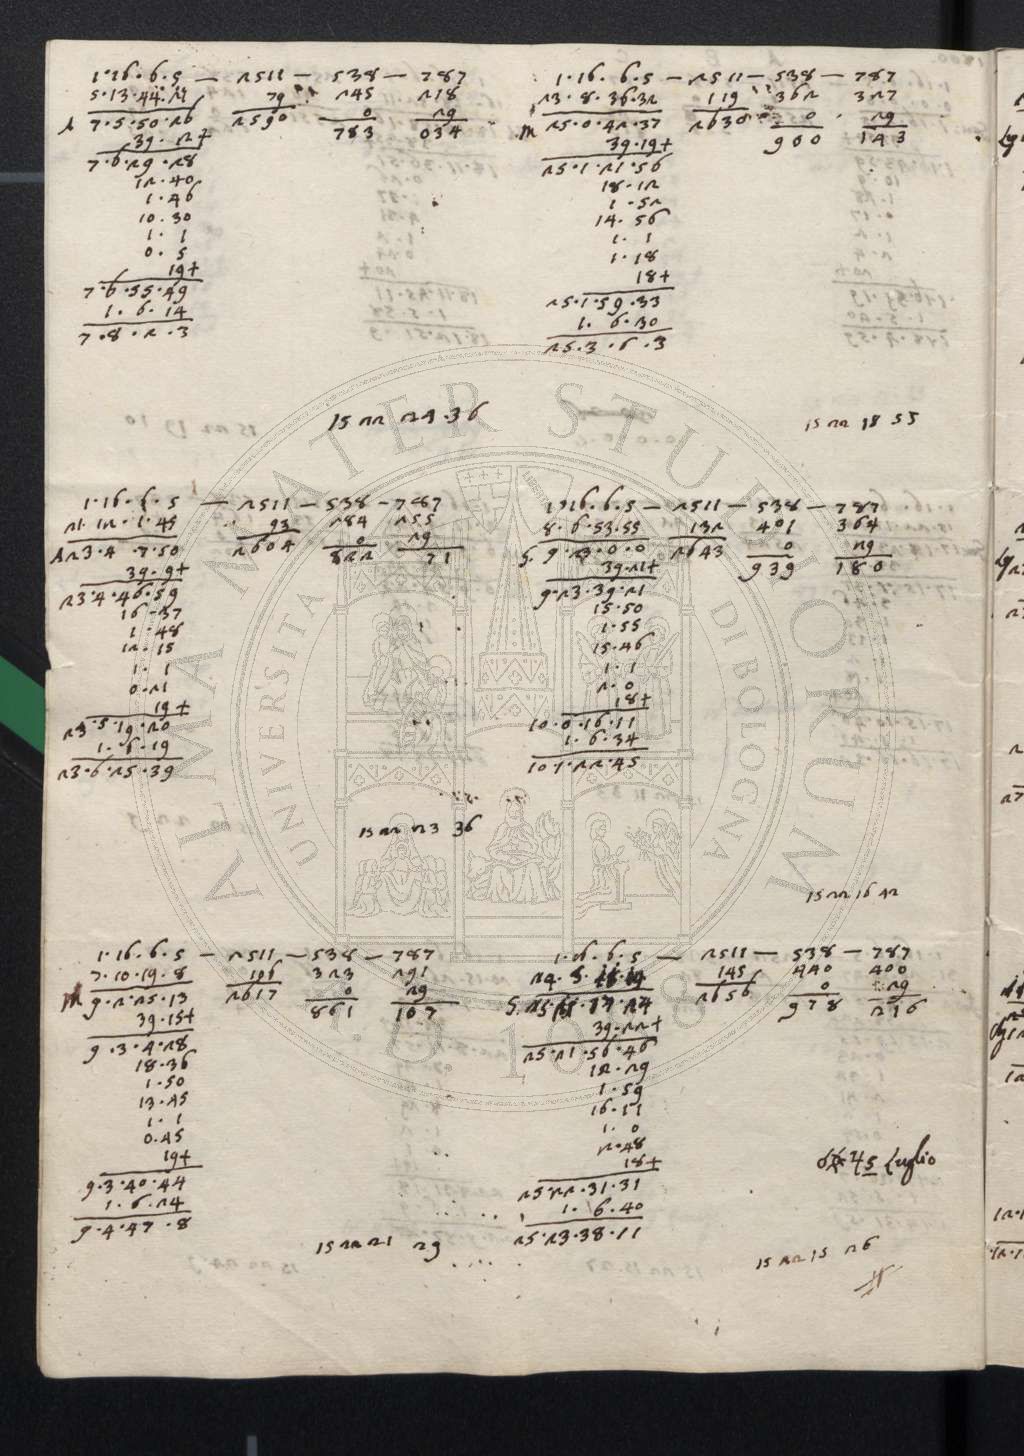 1·16·6·5 — 2511 — 538 — 787
5·13·44·21 79 245 218
7·5·50·26 2590 0 29
39·12+ 783 034
7·6·29·28
12·40
1·46
10·30
1·1
0·5
19+
7·6·55·49
1·6·14
7·8·2·3
15 22 24·36
1·16·6·5 — 2511 — 538 — 787
23·8·36·32 119 362 327
m 25·0·42·37 2630 0 29
39·19+ 900 143
25·1·21·56
18·12
1·52
14·56
1·1
1·18
18+
25·1·59·33
1·6·30
25·3·6·3
15 22 18 55
1·16·6·5 — 2511 — 538 — 787
21·12·1·45 93 284 255
23·4·7·50 2604 0 29
39·9+ 822 71
23·4·46·59
16·37
1·48
12·15
1·1
0·21
19+
23·5·19·20
1·6·19
23·6·25·39
15 22 23 36
1·16·6·5 — 2511 — 538 — 787
8·6·53·55 132 401 364
S. 9·23·0·0 2643 0 29
39·21+ 939 180
9·23·39·21
15·50
1·55
15·46
1·1
2·0
18+
10·0·16·11
1·6·34
10·1·22·45
15 22 16 42
1·16·6·5 — 2511 — 538 — 787
7·10·19·8 106 323 291
m 9·2·25·13 2617 0 29
39·15+ 861 107
9·3·4·28
18·36
1·50
13·45
1·1
0·45
19+
9·3·40·44
1·6·24
9·4·47·8
15 22 21 29
1·16·6·5 — 2511 — 538 — 787
145 440 400
S. 2656 0 29
39·22+ 978 216
25·21·56·46
12·29
1·59
16·11
1·0
2·48
18+
25·22·31·31
1·6·40
25·23·38·11
45 Luglio
15 22 15 26
ALMA MATER STUDIORUM
UNIVERSITA DI BOLOGNA